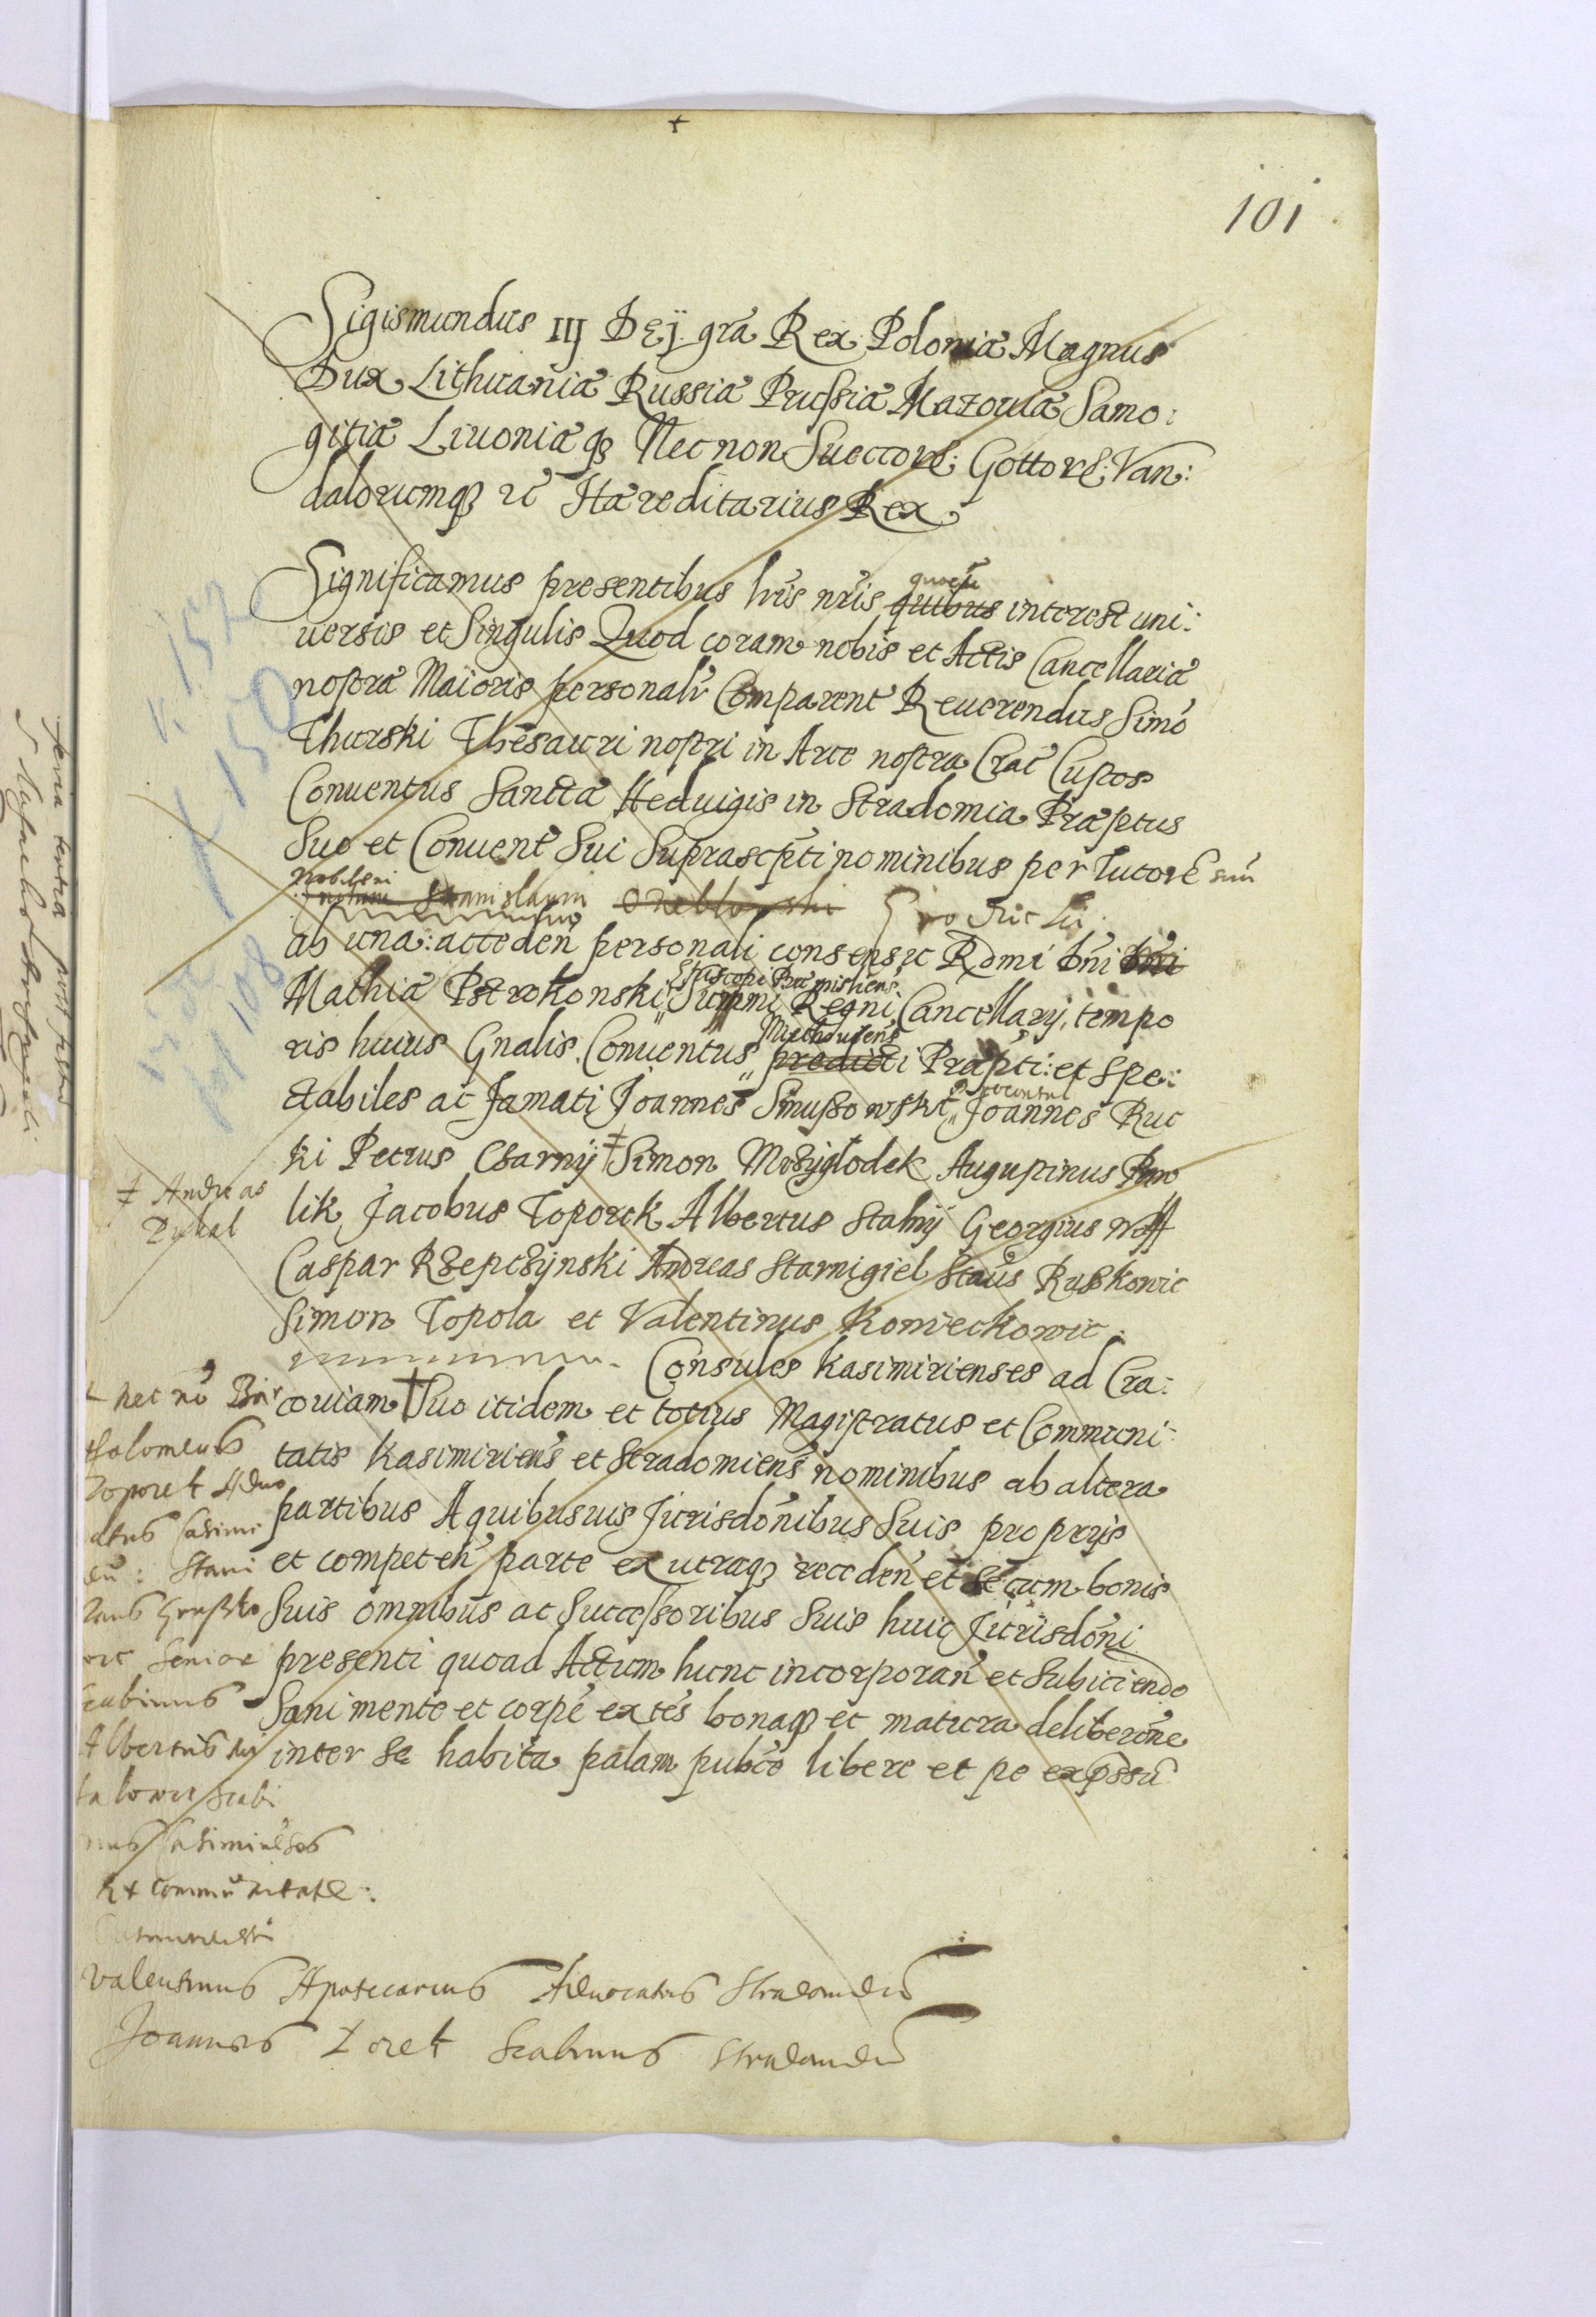 101
Sigismundus IIJ DEJ grã Rex Poloniæ Magnus
Dux Lithuaniæ Russiæ Prussiæ Mazouiæ Samo:
gitiæ Liuoniæqȝ Necnon Sueccorũ: Gottorũ: Van:
dalorumqȝ Hæreditarius Rex
Significamus presentibus lris nris quibus interest uni:
quorũ
uersis et Singulis Quod coram nobis et Actis Cancellariæ
nostræ Maioris personalr Comparent Reuerendus Simõ
Thurski Thesauri nostri in Arce nostra Crac Custos
Conuentus Sanctæ Heduigis in Stradomia Præptus
Suo et Conuent Sui Suprascpti nominibus per Tutorẽ suũ
Nobilem
Stanislaum
ab una: acceden personali consensu Rdmi Dni Dni
Mathiæ Pstrokonski Summi Regni Cancellarij, tempo
Episcopi Præmisliens
ris huius Gnalis Conuentus predicti Præpti: et Spe:
Miechouiens
ctabiles ac famati Joannes Smuszowski Joannes Ruc
Proconsul
ki Petrus Czarny ‡ Simon Mrzyglodek Augustinus Paw
‡ Andreas
lik Jacobus Toporek Albertus Stalny Georgius Wolff
Caspar Rzepczynski Andreas Starnigiel Staus Ruszkowic
Simon Topola et Valentinus Komeckowic
Consules Kasimirienses ad Cra:
couiam † Suo itidem et totius Magistratus et Communi
tatis Kasimiriens et Stradomiens nominibus ab altera
partibus A quibusuis Jurisdonibus Suis proprijs
et competen parte ex utraqȝ receden et Se cum bonis
Suis omnibus ac Successoribus Suis huic Jurisdoni
presenti quoad Actum hunc incorporan et Subiiciendo
Sani mente et corpe extes bonaqȝ et matura deliberone
inter Se habita palam pubce libere et pe expssu
nec nõ Bar
tholomeus
Toporek Aduo
catus Casimi
en: Stani
slaus Gruszko
wic Senior
Scabinus
Albertus
Scabi
nus Casimirẽses
Ex communitate:
Valentinus Apotecarius Aduocatus Stradomien
Joannes Zorek Scabinus Stradomien
V. 152
150
fol 108
feria tertia post festum